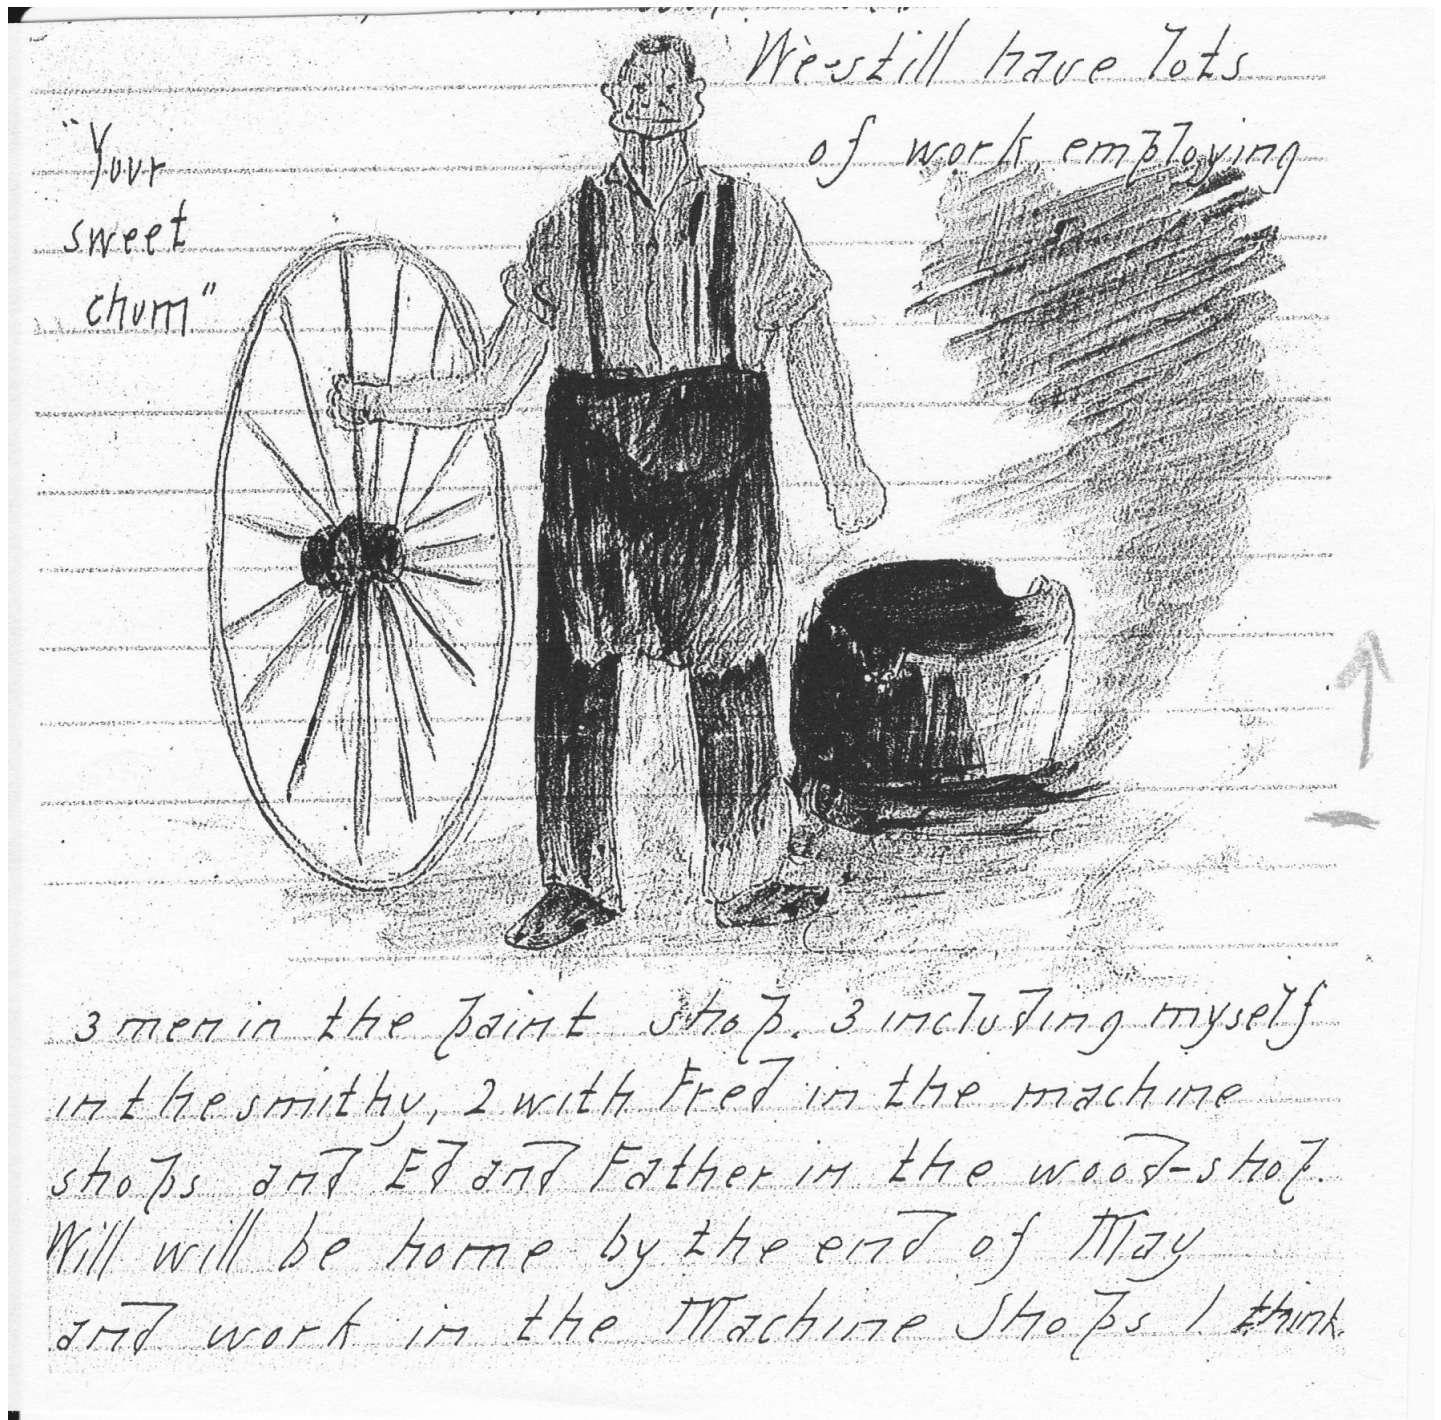 We still have lots
of work, employing
"Your
sweet
chum"
3 men in the paint shop. 3 including myself
in the smithy, 2 with Fred in the machine
shops and Ed and Father in the wood-shop.
Will will be home by the end of May
and work in the Machine Shops I think.